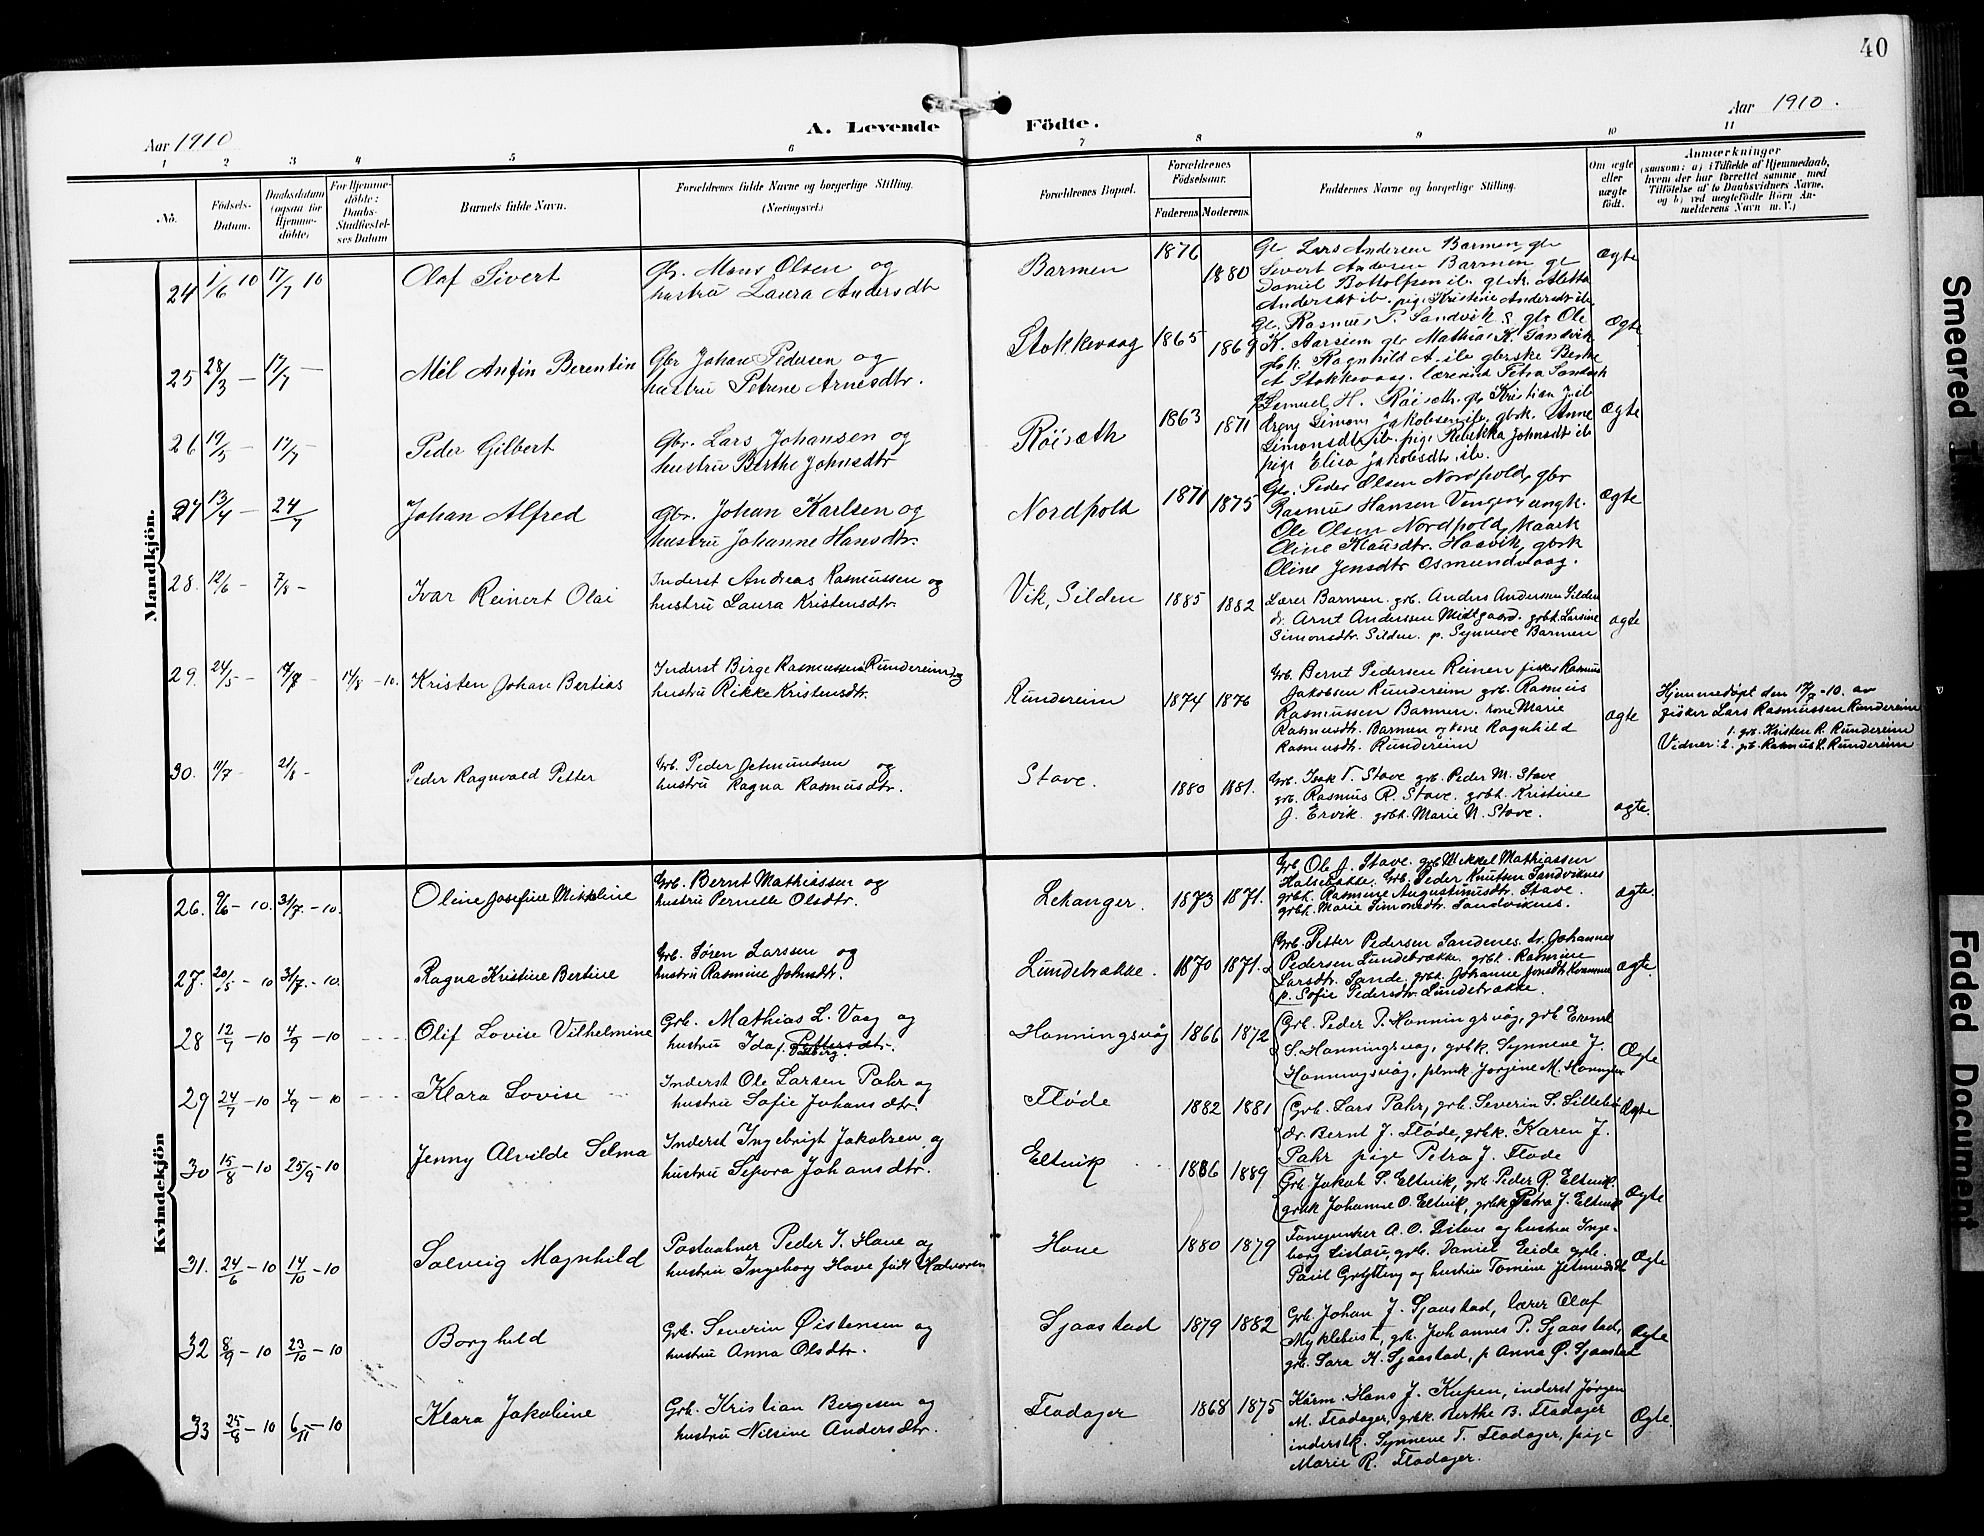 40
Aar 1910
A. Levende Födte.
Aar 1910.
1 2 3 4 5 6 7 8 9 10 11
No.
Födsels-Datum.
Daabsdatum (ogsaa for Hjemmedöbte)
For Hjemmedöbte: Daabs-Stadfæstelses Datum
Barnets fulde Navn.
Forældrenes fulde Navne og borgerlige Stilling.
(Næringsvei.)
Forældrenes Bopæl.
Forældrenes Födselsaar.
Faderens Moderens
Faddernes Navne og borgerlige Stilling.
Om ægte eller uægte födt.
Anmærkninger
(saasom: a) i Tilfælde af Hjemmedaab,
hvem der har forrettet samme, med
Tilföielse af to Daabsvidners Navne,
og b) ved uægtefödte Börn An-
melderens Navn m. V.)
Mandkjön.
24 1/6 10 17/7 10 Olaf Sivert
Gb. Mons Olsen og
hustru Laura Andersdt
Barmen 1876 1880
Gb Lars Andersen Barmen, gbr
Sivert Andersen Barmen gb
Daniel Bottolfsen ib. gbrk. Aletta
Andersdt ib. pige Kristine Andersdt ib.
Ægte
25 28/3 — 17/7 — Mêl Anfin Berentin
Gbr Johan Pedersen og
hustru Petrine Arnesdtr.
Stokkevaag 1865 1869
Gb. Rasmus P. Sandvik & gbr Ole
K. Aarseim gbr Mathias K. Sandvik
gbk. Ragnhild A. ib. gbrske Berthe
A Stokkevaag. lærerinde Petra Sandvik
Ægte
26 19/5 — 17/7 — Peder Gilbert
Gbr. Lars Johansen og
hustru Berthe Johnsdtr
Röisæth 1863 1871
Lemuel H. Röiseth. gb Kristian J. ib
dreng Simon Jakobsen ib. gbrk. Anne
Simonsdt ib. pige Rebekka Johnsdt ib
pige Elisa Jakobsdt. ib.
Ægte
27 13/4 — 24/7 — Johan Alfred
Gbr. Johan Karlsen og
hustru Johanne Hansdtr.
Nordpold 1871 1875
Gb. Peder Olsen Nordpold, gbr
Rasmus Hansen Vengen, ungk.
Ole Olsen Nordpold,
Oline Klausdtr. Haavik, gbrk
Oline Jensdtr Osmundvaag.
Ægte
28. 12/6 — 7/8 — Ivar Reinert Olai
Inderst Andreas Rasmussen og
hustru Laura Kristensdtr.
Vik, Silden 1885 1882
Lærer Barmen. grb. Anders Andersen Silden
dr. Arnt Anderssen Midtgaard. grbk. Larsine
Simonsdtr. Silden. p. Synneve Barmen
ægte
29. 24/5 — 14/8 — 14/8 — 10. Kristen Johan Bertias
Inderst Birge Rasmussen Rundereim og
hustru Rikke Kristensdtr.
Rundereim 1874 1876
Grb. Bernt Pedersen Reinen fisker Rasmus
Jakobsen Rundereim grb. Rasmus
Rasmussen Barmen. kone Marie
Rasmusdtr. Barmen og kone Ragnhild
Rasmusdtr. Rundereim
ægte
Hjemmedöpt den 17/7 - 10. av
fisker Lars Rasmussen Rundereim
1. grb. Kristen R. Rundereim
Vidner: 2. grb. Rasmus L. Rundereim
30. 11/7 — 21/8 — Peder Ragnvald Petter
Grb. Peder Jetmundsen og
hustru Ragna Rasmusdtr.
Stave. 1880 1881.
Grb. Isak T. Stave grb. Peder M. Stave
grb. Rasmus R. Stave. grbk. Kristine
J. Ervik. grbk. Marie N. Stave.
ægte.
Kvindekjön
26. 9/6 — 10. 31/7. — 10. Oline Josefine Mikkeline
Grb. Bernt Mathiassen og
hustru Pernelle Olsdtr.
Lekanger. 1873 1871.
Grb Ole J. Stave. grb Mikkel Mathiassen
Halsebakke. Grb. Peder Knutsen Sandviknes
grbk. Rasmine Augustinusdtr. Stave.
grbk. Marie Simonsdtr. Sandviknes.
ægte.
27. 20/5 — 10 31/7. — 10 Ragna Kristine Bertine
Grb. Sören Larssen og
hustru Rasmine Johnsdtr.
Lundebrække. 1870 1871.
Grb. Petter Pedersen Sandenes. dr. Johannes
Pedersen Lundebrække. grbk. Rasmine
Larsdtr. Sande, grbk. Johanne Jonsdtr.
p. Sofie Pedersdtr. Lundebrække.
ægte.
28 12/7 — 10 4/9 — 10 Olif Lovise Vilhelmine
Grb. Mathias L. Vaag og
hustru Ida f. Pettersdtr.
Dalberg.
Honningsvög 1866 1872
Grb. Peder P. Honningsvög, grb
S. Honningsvåg, grbk. Synneve J.
Honningsvåg, pleiek Jorgine M. Honnings
Ægte
29 24/7 — 10 4/9 — 10 Klara Lovise
Inderst Ole Larsen Pahr og
hustru Sofie Johansdtr.
Flöde 1882 1881
Grb. Lars Pahr, grb. Severin S. Sillebö
dr. Bernt J. Flöde, grbk. Karen J.
Pahr pige Petra J. Flöde
Ægte
30 15/8 — 10 25/9 — 10 Jenny Alvilde Selma
Inderst Ingebrigt Jakobsen og
hustru Sepora Johansdtr.
Eltvik 1886 1889
Grb. Jakob S. Eltvik, grb. Peder R. Eltvik.
grbk Johanne O. Eltvik, grbk. Petra J. Eltvik
Ægte
31. 24/6 — 10 14/10 — 10 Solveig Magnhild
Postaabner Peder J. Hove og
hustru Ingeborg Hove födt Halvorsen
Hove 1880 1879
A. O. Listau og hustru Inge-
borg Listau, grb. Daniel Eide grb.
Paul Grytting og hustru Tomine Jetmundsdt
Ægte
32 8/9 — 10 23/10 — 10 Borghild
Grb. Severin Østensen og
hustru Anna Olsdtr.
Sjaastad 1879 1882
Grb. Johan J. Sjaastad, lærer Olaf
Myklebust, grb. Johannes P. Sjaastad,
grb. Sara K. Sjaastad, p Anna Ø. Sjaastad
Ægte
33 25/8 — 10 6/11 — 10 Klara Jakobine
Grb. Kristian Börgesen og
hustru Nilsine Andersdtr.
Flodager 1868 1875
Kårm. Hans J. Kupen, inderst Jörgen
M. Flodager, grbk. Berthe B. Flodager
inderstk. Synneve T. Flodager, pige
Marie R. Flodager.
Ægte.
Smeared
Faded Document